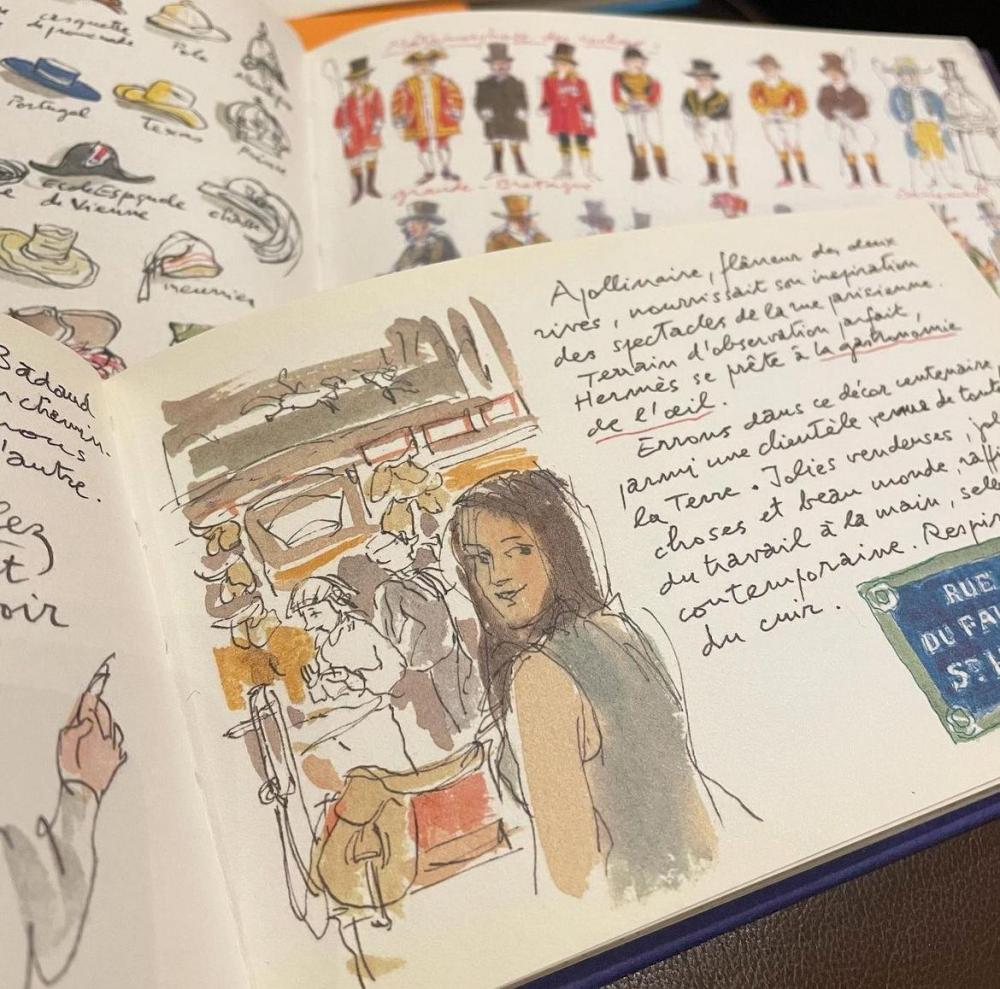 casquette
de promenade
Polo
Portugal
Texas
Ecole Espagnole
de Vienne
chasse
meunier
grande-Bretagne
Badaud
chemin.
nous
l'autre.
oir
Apollinaire, flâneur des deux
rives, nourrissait son inspiration
des spectacles de la rue parisienne.
Terrain d'observation parfait,
Hermès se prête à la gastronomie
de l'œil.
Errons dans ce décor centenaire,
parmi une clientèle venue de tout
la Terre. Jolies vendeuses, jol
choses et beau monde, raffi
du travail à la main, sell
contemporaine. Respir
du cuir.
RUE
DU FA
ST H